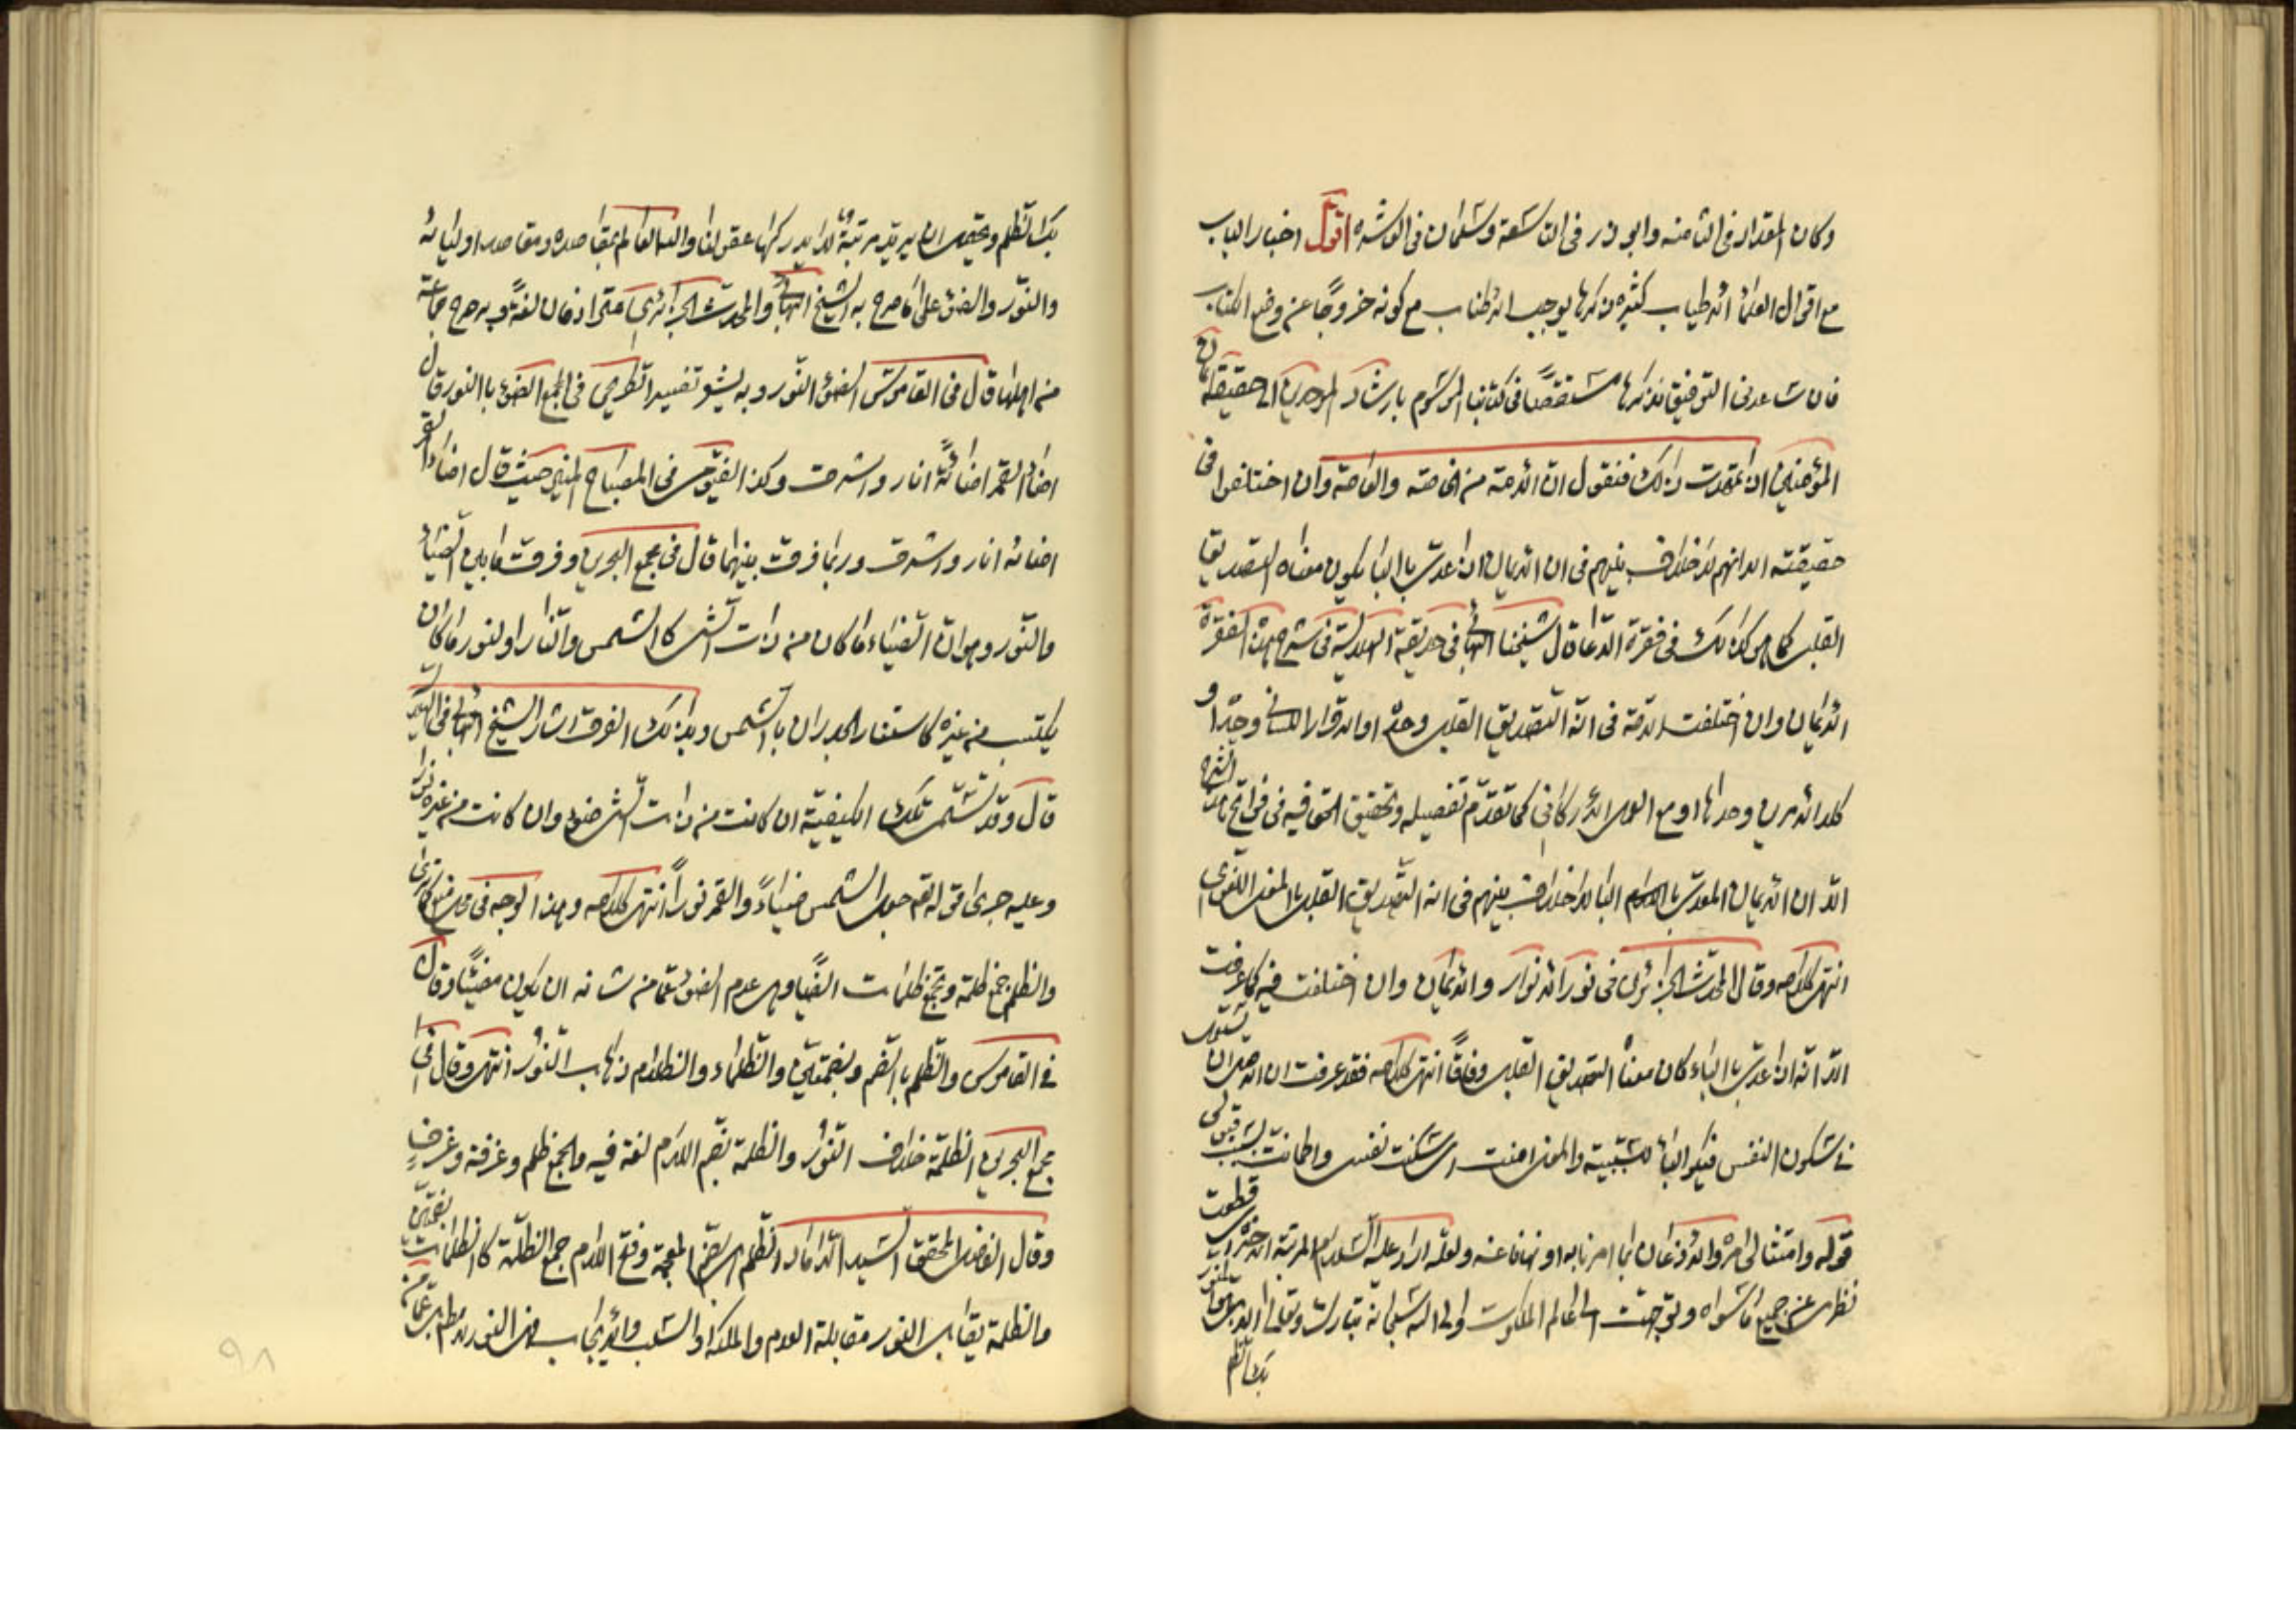 وكان المقداد في الثامنة وابو ذر في التاسعة وسلمان في العاشرة اقول اخبار الباب
مع اقوال العلماء الاطياب كثيرة ذكرها يوجب الاطناب مع كونه خروجا عن وضع الكتاب
فان ساعدني التوفيق نذكرها مستقصا في كتابنا الموسوم بارشاد الموحدين الى حقيقة ايمان
المؤمنين اذا تمهدت ذلك فنقول ان الائمة من الخاصة والعامة وان اختلفوا في
حقيقته الا انهم لا خلاف بينهم في ان الايمان اذا عدي بالباء يكون معناه التصديق
القلبي كما هو كذلك في فقرة الدعا قال شيخنا البهائي في حديقة الهلالية في شرح هذه الفقرة
الايمان وان اختلفت الامة في انه التصديق القلبي وحده او الاقرار اللساني وحده او
كلا الامرين وحدهما او مع العمل الاركاني كما تقدم تفصيله وتحقيق الحق فيه في فواتح هذا الشرح
الا ان الايمان المعدى بالباء لا خلاف بينهم في انه التصديق القلبي بالمعنى اللغوي
انتهى كلامه وقال المحدث الجزائري في نور الانوار والايمان وان اختلفت فيه كما عرفت
الا انه اذا عدي بالباء كان معناه التصديق القلبي وفاقا انتهى كلامه فقد عرفت ان الاصل ان يستعمل
في سكون النفس فيكون الباء للسببية والمعنى امنت اي سكنت نفسي واطمانت بسبب قبولي
قوله وامتثالي امره والاذعان بما امرنا به او نهانا عنه ولعله اراد عليه السلام المرتبة الاخيرة اي قطعت
نظري عن جميع ما سواه وتوجهت الى عالم الملكوت والى الله سبحانه تبارك وتعالى الذي هو المنور
بك الظلم
بك الظلم ويحتمل ان يريد مرتبة لا يدركها عقولنا والله العالم بمقاصده ومقاصد اوليائه
والنور والضوء على ما صرح به الشيخ البهائي والمحدث الجزائري مترادفان لغة وبه صرح جماعة
من اهلها قال في القاموس الضوء النور وبه يشعر تفسير الطريحي في المجمع الضوء بالنور قال
اضاء القمر اضائة انار واشرق وكذا الفيومي في المصباح المنير حيث قال اضاء القمر
اضائة انار واشرق وربما فرقت بينهما قال في مجمع البحرين وفرقت ما بين الضياء
والنور وهو ان الضياء ما كان من ذات الشيء كالشمس والنار والنور ما كان
يكتسب من غيره كاستنار الجدران بالشمس وبذلك الفرق اشار الشيخ البهائي في
قال وقد تسمى تلك الكيفية ان كانت من ذات الشيء ضوء وان كانت من غيره نورا
وعليه جرى قوله تعالى جعل الشمس ضياء والقمر نورا انتهى كلامه وهذا الوجه في محله كما ترى
والظلم جمع ظلمة وتجمع ظلمات ايضا وهي عدم الضوء عما من شانه ان يكون مضيئا وقال
في القاموس والظلم بالضم وبضمتين والظلماء والظلام ذهاب النور انتهى وقال في
مجمع البحرين الظلمة خلاف النور والظلمة بضم اللام لغة فيه والجمع ظلم وغرفة وغرف
وقال الفاضل المحقق السيد الداماد الظلم بضم المعجمة وفتح اللام جمع الظلمة كالظلمات بضمتين
والظلمة يقابل النور مقابلة العدم والملكة او السلب والايجاب فمن النور
٩٨